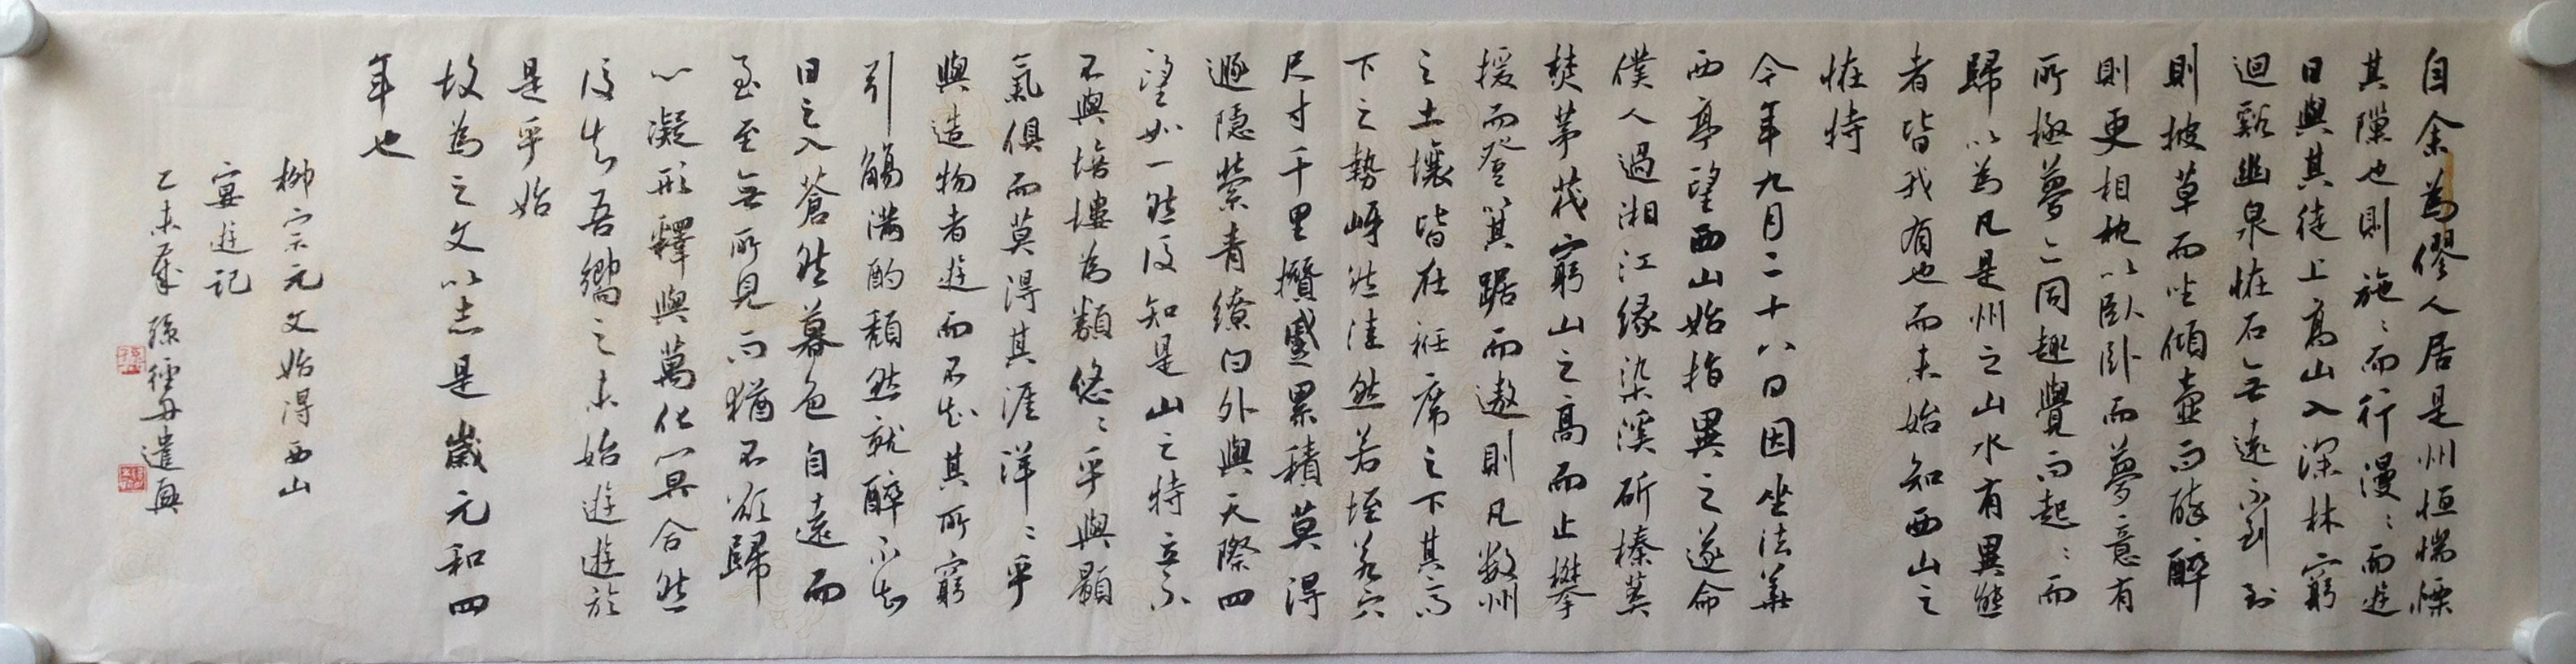 自余為僇人居是州恒惴慄
其隟也則施〻而行漫〻而遊
日與其徒上高山入深林窮
迴谿幽泉怪石無遠不到到
則披草而坐傾壺而醉醉
則更相枕以臥臥而夢意有
所極夢亦同趣覺而起〻而
歸以為凡是州之山水有異態
者皆我有也而未始知西山之
怪特
今年九月二十八日因坐法華
西亭望西山始指異之遂命
僕人過湘江緣染溪斫榛莽
焚茅茷窮山之高而止攀
援而登箕踞而遨則凡数州
之土壤皆在衽席之下其高
下之勢岈然洼然若垤若穴
尺寸千里攢蹙累積莫得
遯隱縈青繚白外與天際四
望如一然後知是山之特立
不與培塿為類悠〻乎與顥
氣俱而莫得其涯洋〻乎
與造物者遊而不知其所窮
引觴滿酌頹然就醉不知
日之入蒼然暮色自遠而
至至無所見而猶不欲歸
心凝形釋與萬化冥合然
後知吾嚮之未始遊遊於
是乎始
故為之文以志是歲元和四
年也
柳宗元文始得西山
宴遊記
乙未 孫 遣興